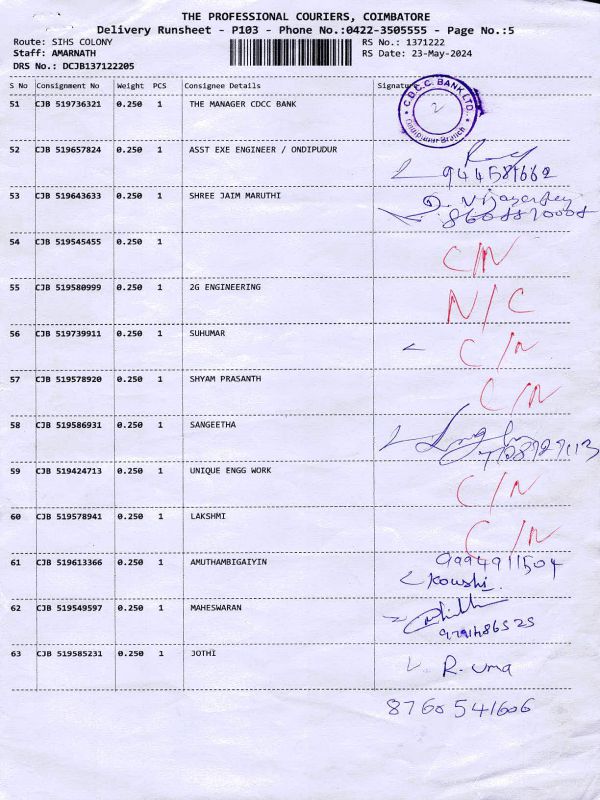 THE PROFESSIONAL COURIERS, COIMBATORE
Delivery Runsheet - P103 - Phone No.:0422-3505555 - Page No.:5
Route: SIHS COLONY RS No.: 1371222
Staff: AMARNATH RS Date: 23-May-2024
DRS No.: DCJB137122205
S No Consignment No Weight PCS Consignee Details Signature
51 CJB 519736321 0.250 1 THE MANAGER CDCC BANK C.D.C.C. BANK LTD. Ondipudur Branch
52 CJB 519657824 0.250 1 ASST EXE ENGINEER / ONDIPUDUR
9445871662
53 CJB 519643633 0.250 1 SHREE JAIM MARUTHI
54 CJB 519545455 0.250 1 C/N
55 CJB 519580999 0.250 1 2G ENGINEERING N/C
56 CJB 519739911 0.250 1 SUHUMAR C/N
57 CJB 519578920 0.250 1 SHYAM PRASANTH C/N
58 CJB 519586931 0.250 1 SANGEETHA
59 CJB 519424713 0.250 1 UNIQUE ENGG WORK C/N
60 CJB 519578941 0.250 1 LAKSHMI C/N
61 CJB 519613366 0.250 1 AMUTHAMBIGAIYIN 9994911504
Koushi
62 CJB 519549597 0.250 1 MAHESWARAN
63 CJB 519585231 0.250 1 JOTHI R. uma
8760541606